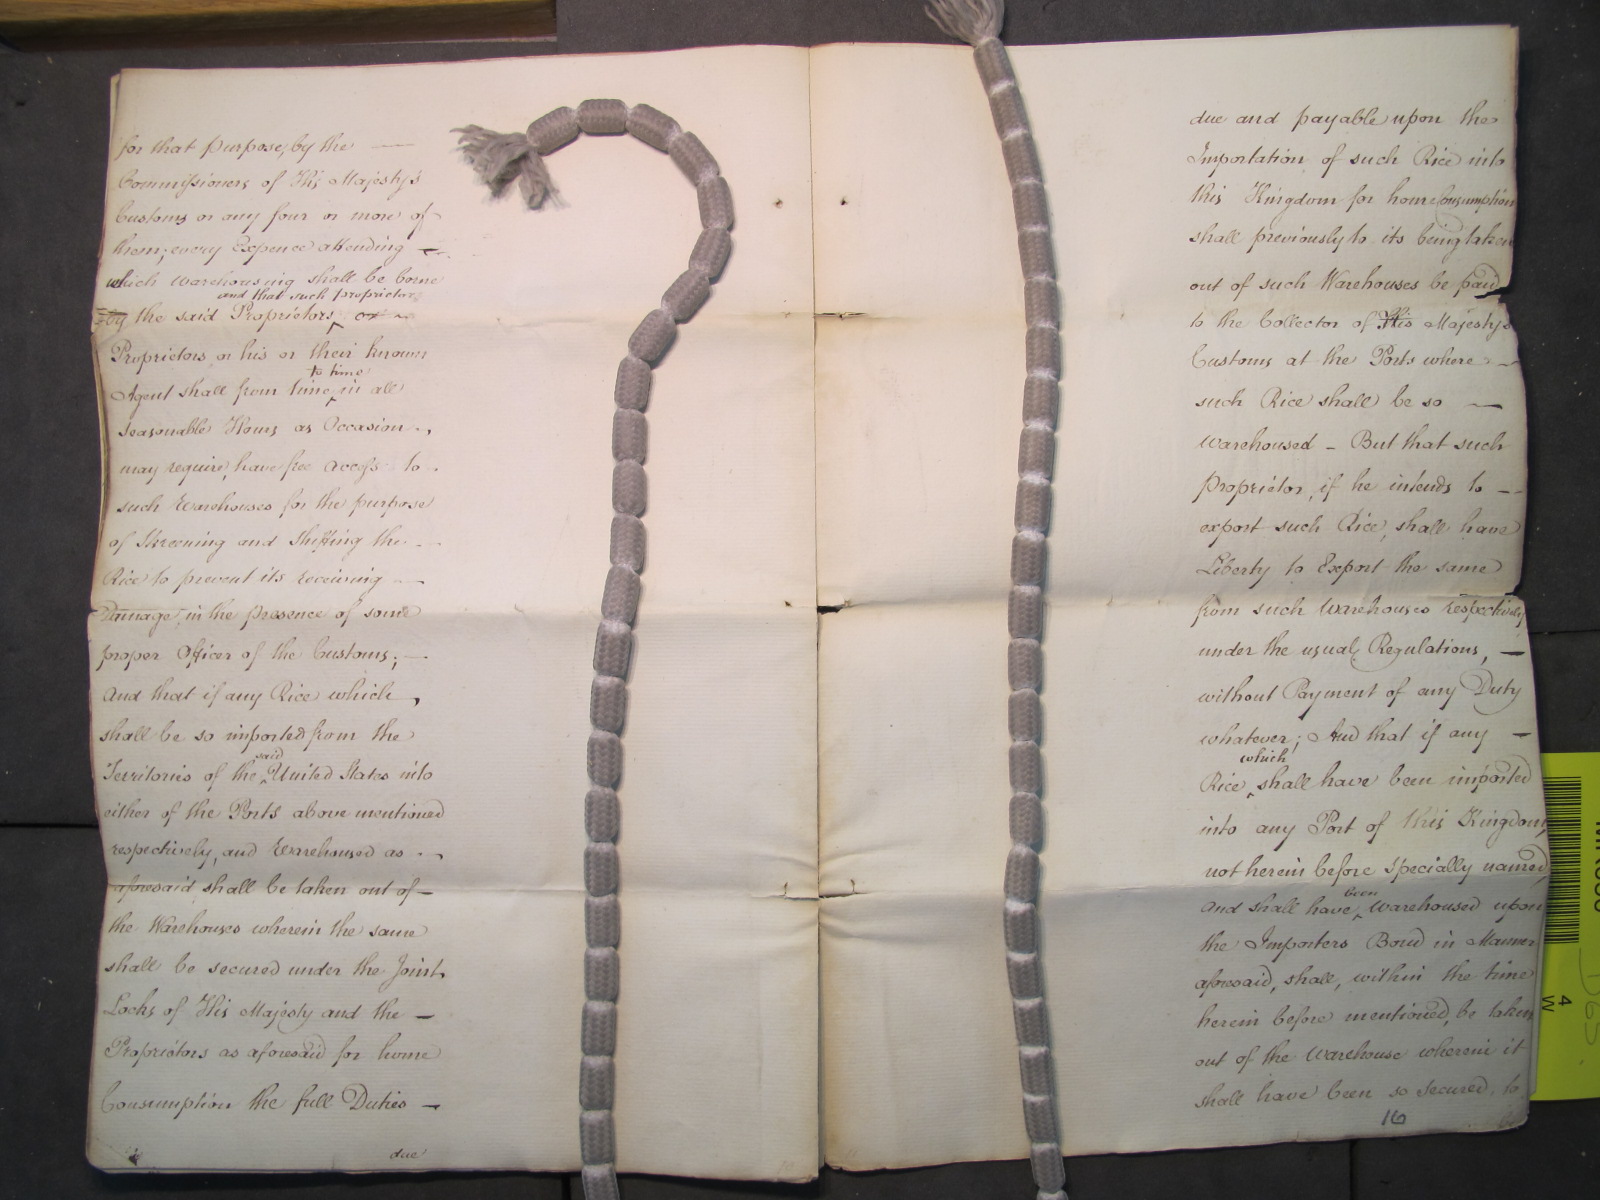 for that Purpose, by the
Commissioners of His Majesty's
Customs or any four or more of
them; every Expence attending
which warehousing shall be borne
and that such proprietors
by the said Proprietors, or
Proprietors or his or their known
to time
Agent shall from time, in all
seasonable Hours as Occasion
may require, have free access to
such Warehouses for the purpose
of Skreening and Shifting the
Rice to prevent its receiving
Damage, in the presence of some
proper Officer of the Customs;
And that if any Rice which
shall be so imported from the
said
Territories of the United States into
either of the Ports above mentioned
respectively, and Warehoused as
aforesaid shall be taken out of
the Warehouses wherein the same
shall be secured under the Joint
Locks of His Majesty and the
Proprietors as aforesaid for home
Consumption the full Duties
due
due and payable upon the
Importation of such Rice into
this Kingdom for home Consumption
shall previously to its being taken
out of such Warehouses be paid
to the Collector of His Majesty's
Customs at the Ports where
such Rice shall be so
warehoused - But that such
Proprietor, if he intends to
export such Rice, shall have
Liberty to Export the same
from such Warehouses respectively
under the usual Regulations,
without Payment of any Duty
whatever; And that if any
which
Rice shall have been imported
into any Port of this Kingdom,
not herein before specially named,
been
and shall have Warehoused upon
the Importers Bond in Manner
aforesaid, shall, within the time
herein before mentioned, be taken
out of the Warehouse wherein it
shall have been so secured, to
16
4
W